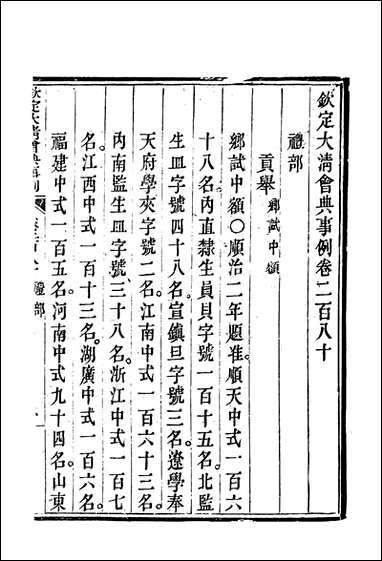 欽定大清會典事例卷二百八十
禮部
貢舉 鄉試中額
鄉試中額〇順治二年題准順天中式一百六
十八名內直隸生員貝字號一百十五名北監
生皿字號四十八名宣鎮旦字號三名遼學奉
天府學夾字號二名江南中式一百六十三名
內南監生皿字號三十八名浙江中式一百七
名江西中式一百十三名湖廣中式一百六名
福建中式一百五名河南中式九十四名山東
欽定大清會典事例
禮部